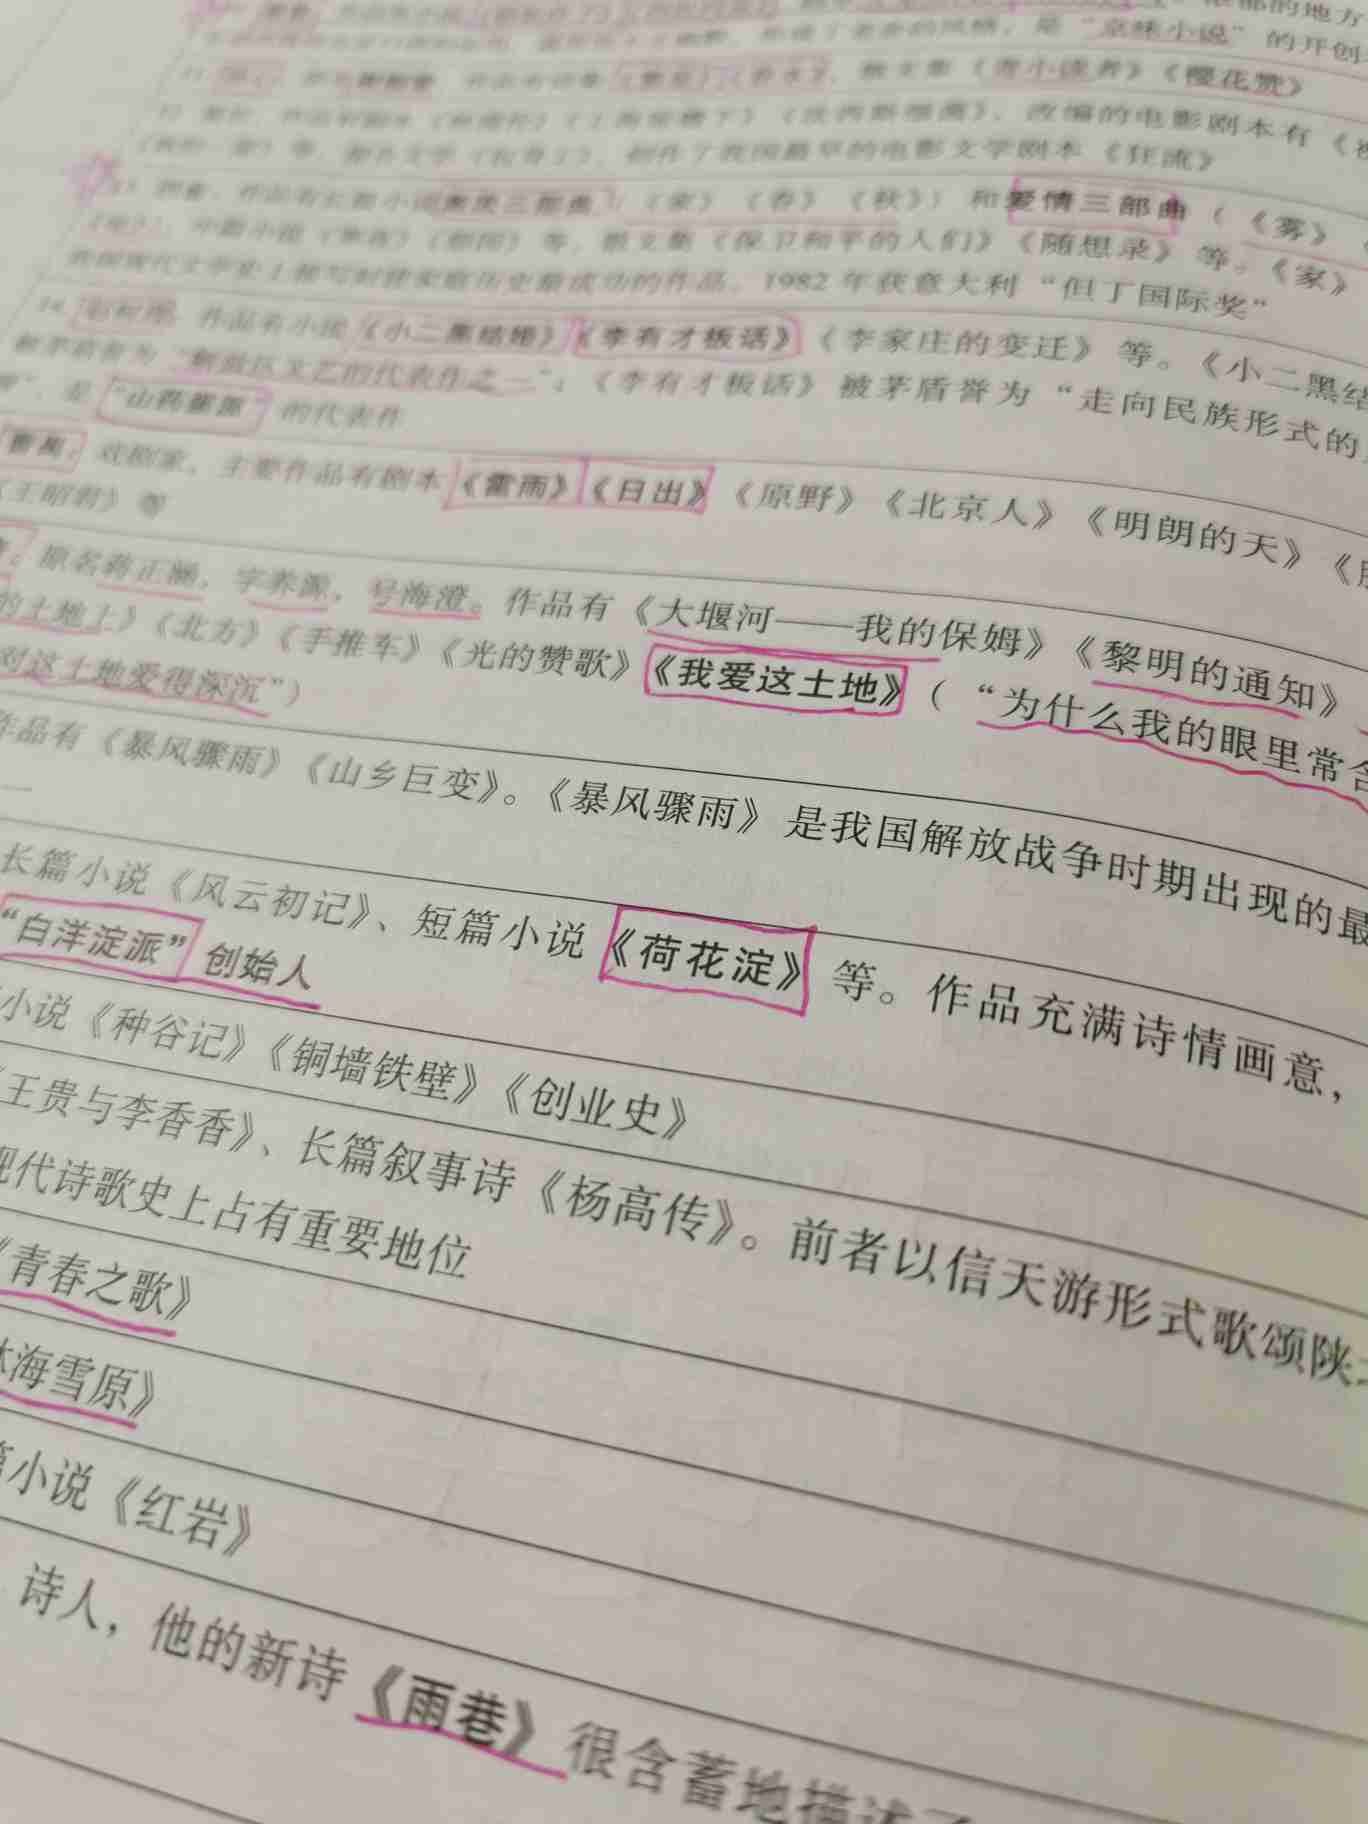 的地方
是“京味小说”的开创
散文集《寄小读者》《樱花赞》
改编的电影剧本有《
创作了我国最早的电影文学剧本《狂流》
《家》《春》《秋》）和爱情三部曲（《雾》
散文集《保卫和平的人们》《随想录》等。《家》
我国现代文学史上描写封建家庭历史最成功的作品。1982年获意大利“但丁国际奖”
14 赵树理，作品有小说《小二黑结婚》《李有才板话》《李家庄的变迁》等。《小二黑结
被茅盾誉为“解放区文艺的代表作之一”；《李有才板话》被茅盾誉为“走向民族形式的
”，是“山药蛋派”的代表作
曹禺，戏剧家，主要作品有剧本《雷雨》《日出》《原野》《北京人》《明朗的天》《
《王昭君》等
原名蒋正涵，字养源，号海澄。作品有《大堰河——我的保姆》《黎明的通知》
的土地上》《北方》《手推车》《光的赞歌》《我爱这土地》（“为什么我的眼里常含
对这土地爱得深沉”）
作品有《暴风骤雨》《山乡巨变》。《暴风骤雨》是我国解放战争时期出现的最
一
长篇小说《风云初记》、短篇小说《荷花淀》等。作品充满诗情画意，
“白洋淀派”创始人
小说《种谷记》《铜墙铁壁》《创业史》
《王贵与李香香》、长篇叙事诗《杨高传》。前者以信天游形式歌颂陕
现代诗歌史上占有重要地位
《青春之歌》
林海雪原》
篇小说《红岩》
诗人，他的新诗《雨巷》很含蓄地描述了